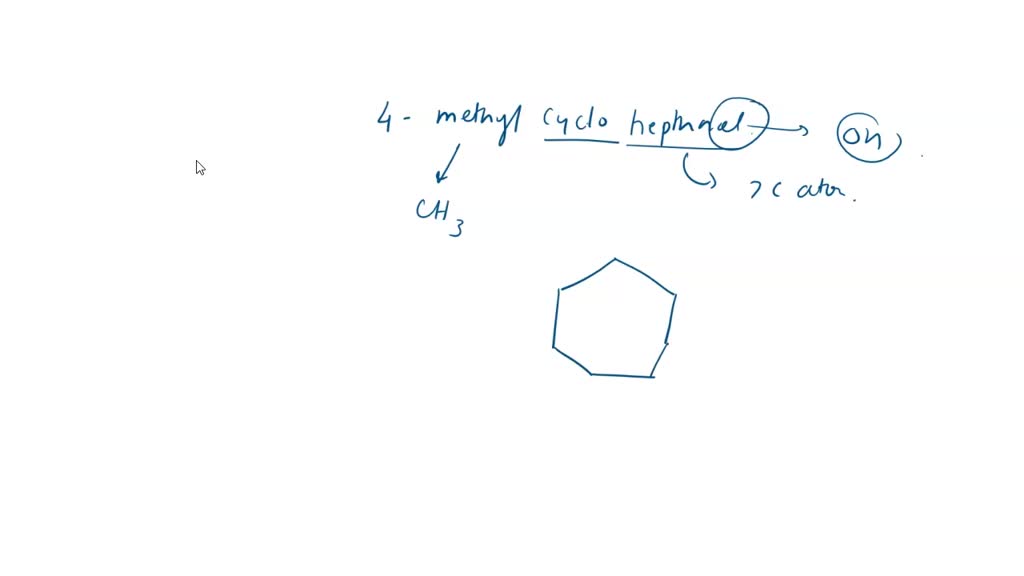 4 - methyl cyclo hepthnol → OH
CH3
7 C ator.